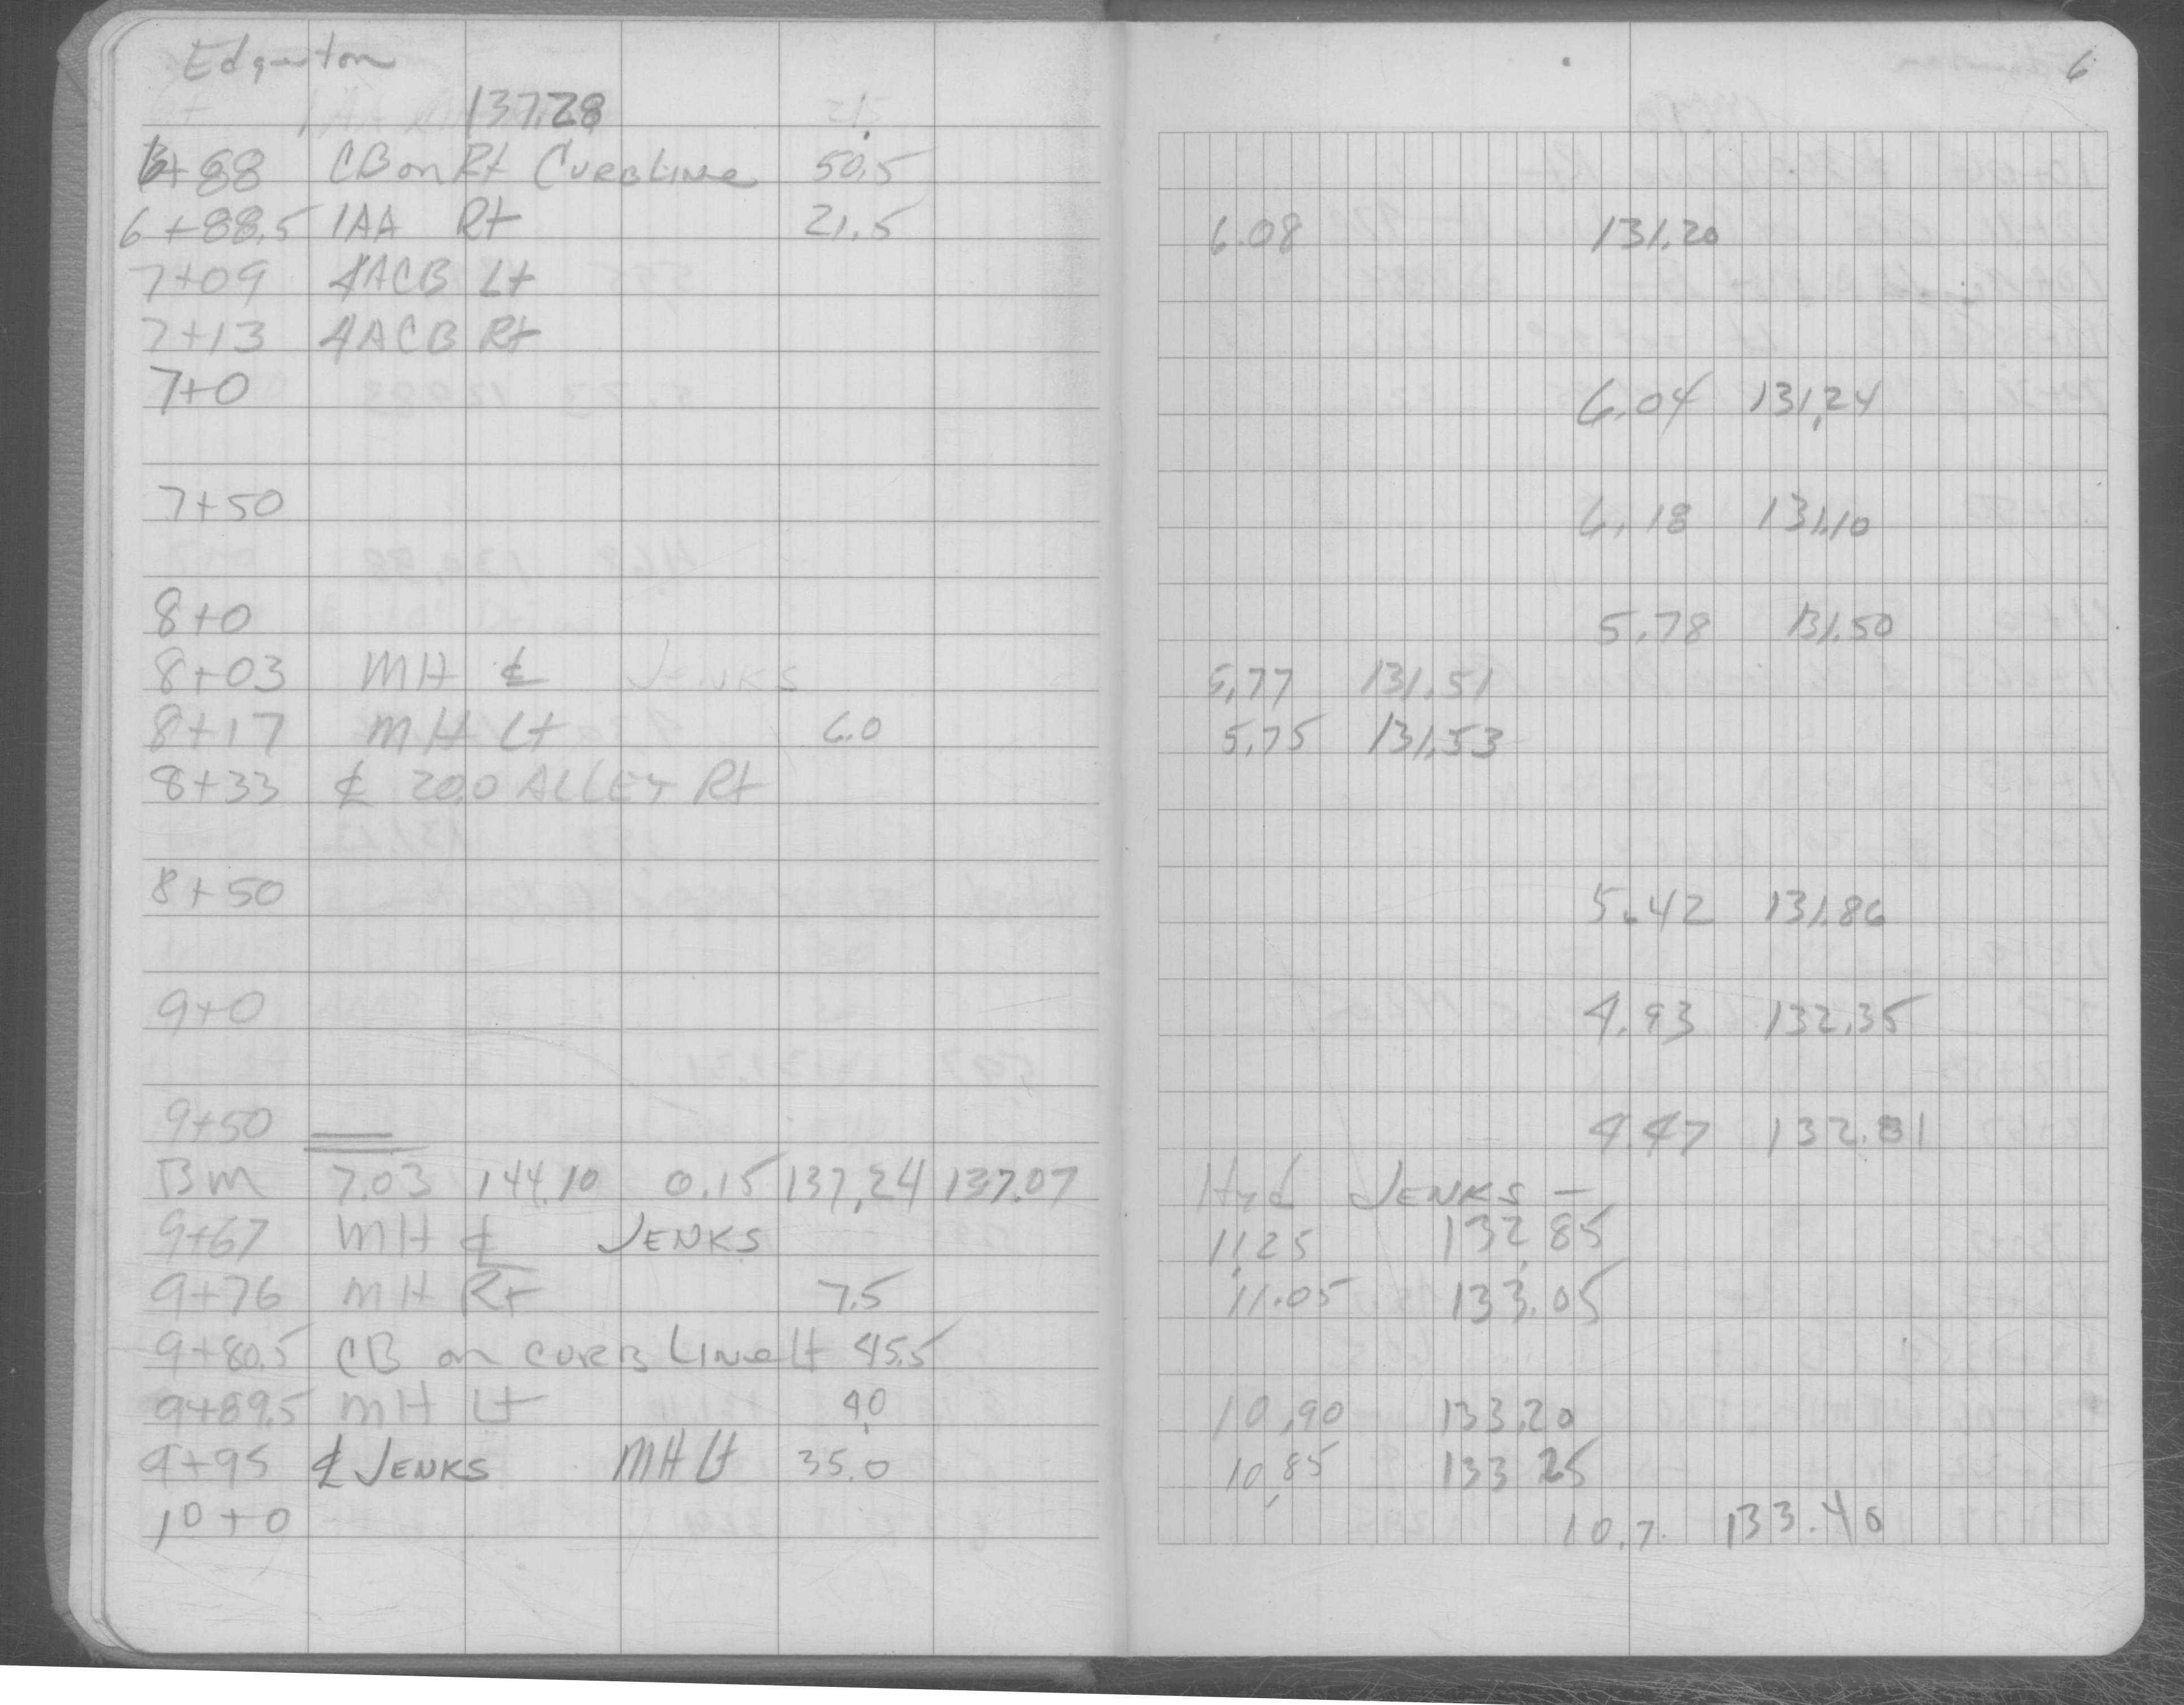 Edgerton 6
137.28
6+88 CB on Rt Curb Line 50.5
6+88.5 1AA Rt 21.5 6.08 131.20
7+09 4ACB Lt
7+13 4ACB Rt
7+0 6.04 131.24
7+50 6.18 131.10
8+0 5.78 131.50
8+03 MH ℄ JENKS 5.77 131.51
8+17 MH Lt 6.0 5.75 131.53
8+33 ℄ 20.0 ALLEY Rt
8+50 5.42 131.86
9+0 4.93 132.35
9+50 4.47 132.81
BM 7.03 144.10 0.15 137.24 137.07 Hyd JENKS –
9+67 MH ℄ JENKS 11.25 132.85
9+76 MH Rt 7.5 11.05 133.05
9+80.5 CB on CURB Line Lt 45.5
9+89.5 MH Lt 4.0 10.90 133.20
9+95 ℄ JENKS MH Lt 35.0 10.85 133.25
10+0 10.7 133.40